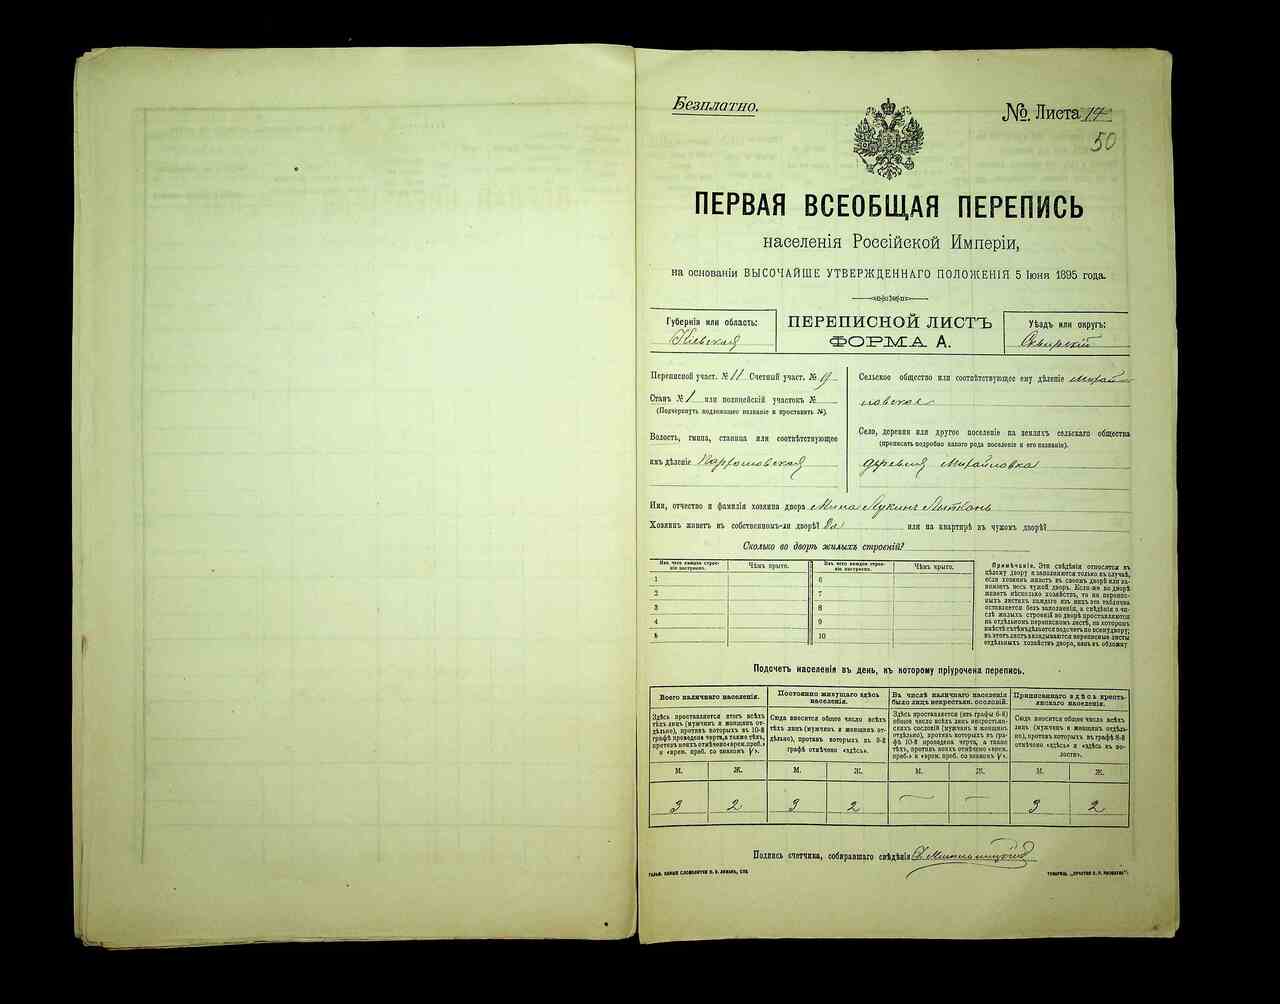 Безплатно.
№ Листа 17
50
ПЕРВАЯ ВСЕОБЩАЯ ПЕРЕПИСЬ
населенія Россійской Имперіи,
на основаніи ВЫСОЧАЙШЕ УТВЕРЖДЕННАГО ПОЛОЖЕНІЯ 5 Іюня 1895 года.
Губернія или область:
Кіевская
ПЕРЕПИСНОЙ ЛИСТЪ
ФОРМА А.
Уѣздъ или округъ:
Сквирскій
Переписной участ. № 11 Счетный участ. №
Станъ № 1 или полицейскій участокъ №
(Подчеркнуть подлежащее названіе и проставить №).
Волость, гмина, станица или соотвѣтствующее
имъ дѣленіе
Сельское общество или соотвѣтствующее ему дѣленіе Михай-
ловское
Село, деревня или другое поселеніе на земляхъ сельскаго общества
(прописать подробно какого рода поселеніе и его названіе).
деревня Михайловка
Имя, отчество и фамилія хозяина двора Мина Лукинъ
Хозяинъ живетъ въ собственномъ-ли дворѣ? Да или на квартирѣ въ чужомъ дворѣ?
Сколько во дворѣ жилыхъ строеній?
Изъ чего каждое строеніе построено. Чѣмъ крыто. Изъ чего каждое строеніе построено. Чѣмъ крыто.
1 6
2 7
3 8
4 9
5 10
Примѣчаніе. Эти свѣдѣнія относятся къ
цѣлому двору и заполняются только въ случаѣ,
если хозяинъ живетъ въ своемъ дворѣ или занимаетъ
весь чужой дворъ. Если-же во дворѣ
живетъ нѣсколько хозяйствъ, то на переписныхъ
листахъ каждаго изъ нихъ эта табличка
оставляется безъ заполненія, а свѣдѣнія о числѣ
жилыхъ строеній во дворѣ проставляются
на отдѣльномъ переписномъ листѣ, на которомъ
вмѣстѣ съ тѣмъ дѣлается подсчетъ по всему двору;
въ этотъ листъ вкладываются переписные листы
отдѣльныхъ хозяйствъ двора, какъ въ обложку
Подсчетъ населенія въ день, къ которому пріурочена перепись.
Всего наличнаго населенія.
Здѣсь проставляется итогъ всѣхъ
тѣхъ лицъ (мужчинъ и женщинъ отдѣльно),
противъ которыхъ въ 10-й
графѣ проведена черта, а также тѣхъ,
противъ коихъ отмѣчено «врем. преб.»
и «врем. преб. со знакомъ V».
Постоянно живущаго здѣсь
населенія.
Сюда вносится общее число всѣхъ
тѣхъ лицъ (мужчинъ и женщинъ отдѣльно),
противъ которыхъ въ 9-й
графѣ отмѣчено «здѣсь».
Въ числѣ наличнаго населенія
было лицъ некрестьян. сословій.
Здѣсь проставляется (изъ графы 6-й)
общее число всѣхъ лицъ некрестьянскихъ
сословій (мужчинъ и женщинъ
отдѣльно), противъ которыхъ въ графѣ
10-й проведена черта, а также
тѣхъ, противъ коихъ отмѣчено «врем.
преб.» и «врем. преб. со знакомъ V».
Приписаннаго здѣсь крестьянскаго
населенія.
Сюда вносится общее число всѣхъ
лицъ (мужчинъ и женщинъ отдѣльно),
противъ которыхъ въ графѣ 8-й
отмѣчено «здѣсь» и «здѣсь въ волости».
М. Ж. М. Ж. М. Ж. М. Ж.
3 2 3 2 — — 3 2
Подпись счетчика, собиравшаго свѣдѣнія